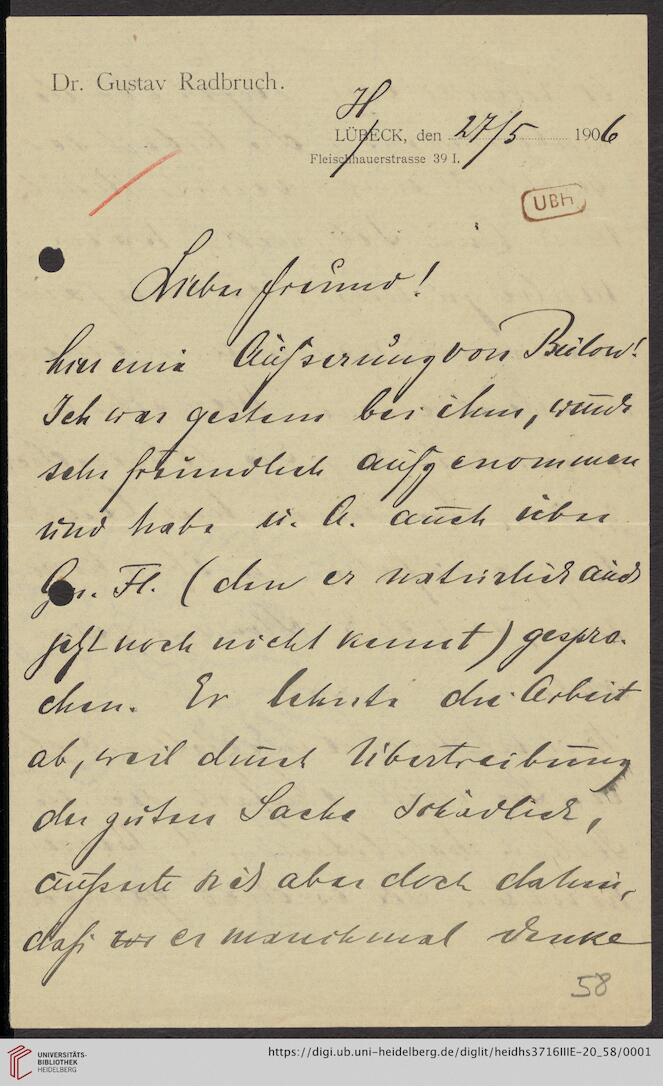 Dr. Gustav Radbruch.
H
LÜBECK, den 27/5 1906
Fleischhauerstrasse 39 I.
UBH
Lieber Freund!
hier eine Äußerung von Bülow!
Ich war gestern bei ihm, wurde
sehr freundlich aufgenommen
und habe u. A. auch über
Gn. Fl. (den er natürlich auch
jetzt noch nicht kennt) gespro-
chen. Er lehnte die Arbeit
ab, weil durch Übertreibung
der guten Sache schädlich,
äußerte sich aber doch dahin,
daß er manchmal denke
58
UNIVERSITÄTS-
BIBLIOTHEK
HEIDELBERG
https://digi.ub.uni-heidelberg.de/diglit/heidhs3716IIIE-20_58/0001